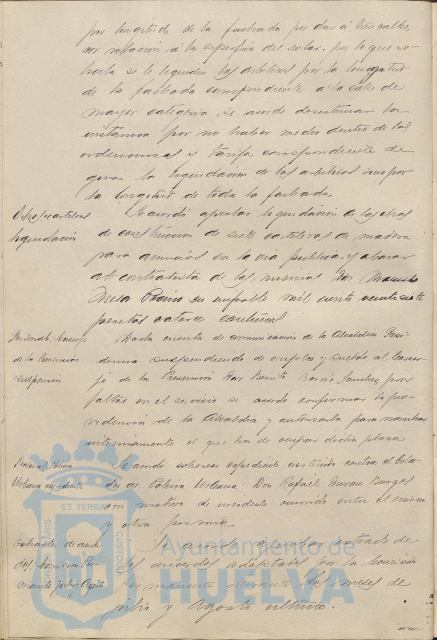 por longitud de la fachada por dar á tres calles,
sin relación á la superficie del solar, por lo que so-
licita se le liquiden los arbitrios por la longitud
de la fachada correspondiente a la calle de
mayor categoria se acordo desestimar la
instancia por no haber medio dentro de las
ordenanzas y tarifa correspondiente de
girar la liquidación de los arbitrios sino por
la longitud de toda la fachada
Obras carteleras
liquidación
Se acordó aprobar liquidación de las obras
de construccion de siete carteleras de madera
para anuncios en la via publica y abonar
al contratista de las mismas Don Manuel
Mesa su importe mil ciento veintisiete
pesetas catorce centimos
Personal Conserje
de la Prevención
suspensión
Dada cuenta de comunicacion de la Alcaldia Presi-
dencia suspendiendo de empleo y sueldo al Conser-
je de la Prevencion Don Benito Barrio Sanchez por
faltas en el servicio se acordo confirmar la pro-
videncia de la Alcaldia y autorizarla para nombrar
interinamente el que ha de ocupar dicha plaza
Personal Policia
Urbana expediente
Se acordó sobreseer expediente instruido contra el Cela-
dor de Policia Urbana Don Rafael Duran Burgos
con motivo de incidente ocurrido entre el mismo
y otra persona
Extracto de acuer-
dos Comisión Per-
manente Julio y Agosto
Se acordó aprobar extracto de
los acuerdos adoptados por la Comisión
Permanente durante los meses de
julio y Agosto ultimo.
Ayuntamiento de
HUELVA